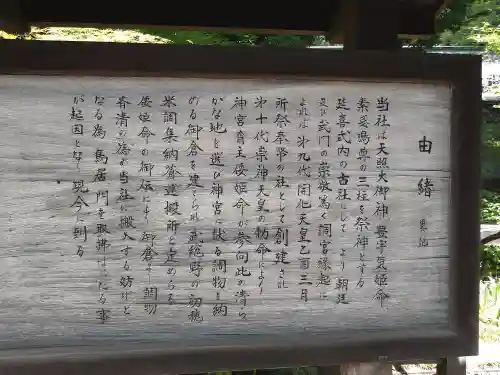 由緒 略記
当社は天照大御神 豊宇気姫命
素盞嗚尊の三柱を祭神とする
延喜式内の古社にして より朝廷
及び武門の崇敬篤く 同宮縁起に
よれば 第九代開化天皇乙未三月
所祭奉幣の社として創建され
第十代崇神天皇の勅命により
神宮斎主倭姫命が参向 此の清ら
かな地を選び神宮に献る調物を納
める御倉を建てられ武総時の初穂
米調集納倉運搬所と定めらる
倭姫命の御伝により御倉の 調物
斉清の為め当社に搬入する妨げと
なる為 鳥居 門を取払 たる事
が起因となり現今に到る